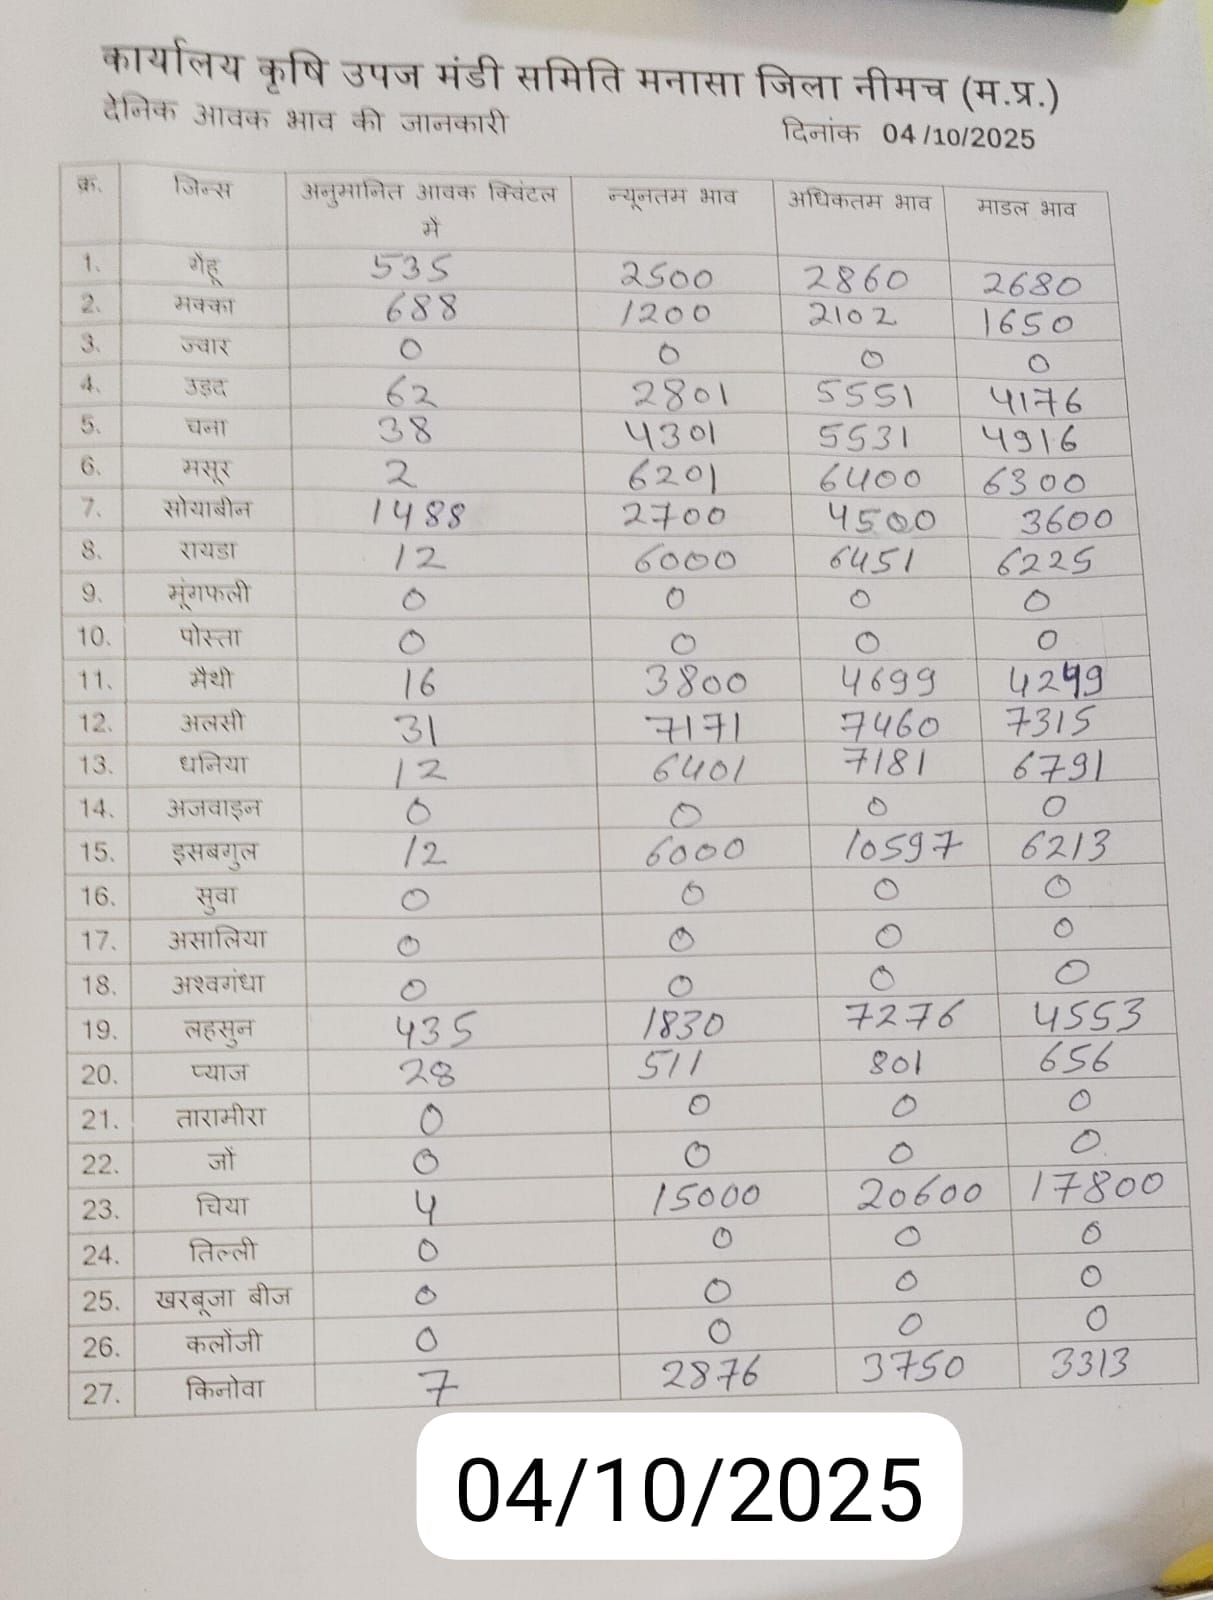 कार्यालय कृषि उपज मंडी समिति मनासा जिला नीमच (म.प्र.)
दैनिक आवक भाव की जानकारी दिनांक 04/10/2025
क्र. जिन्स अनुमानित आवक क्विंटल में न्यूनतम भाव अधिकतम भाव माडल भाव
1. गेंहू 535 2500 2860 2680
2. मक्का 688 1200 2102 1650
3. ज्वार 0 0 0 0
4. उड़द 62 2801 5551 4176
5. चना 38 4301 5531 4916
6. मसूर 2 6201 6400 6300
7. सोयाबीन 1488 2700 4500 3600
8. रायडा 12 6000 6451 6225
9. मूंगफली 0 0 0 0
10. पोस्ता 0 0 0 0
11. मैथी 16 3800 4699 4249
12. अलसी 31 7171 7460 7315
13. धनिया 12 6401 7181 6791
14. अजवाइन 0 0 0 0
15. इसबगुल 12 6000 10597 6213
16. सुवा 0 0 0 0
17. असालिया 0 0 0 0
18. अश्वगंधा 0 0 0 0
19. लहसुन 435 1830 7276 4553
20. प्याज 28 511 801 656
21. तारामीरा 0 0 0 0
22. जों 0 0 0 0
23. चिया 4 15000 20600 17800
24. तिल्ली 0 0 0 0
25. खरबूजा बीज 0 0 0 0
26. कलोंजी 0 0 0 0
27. किनोवा 7 2876 3750 3313
04/10/2025